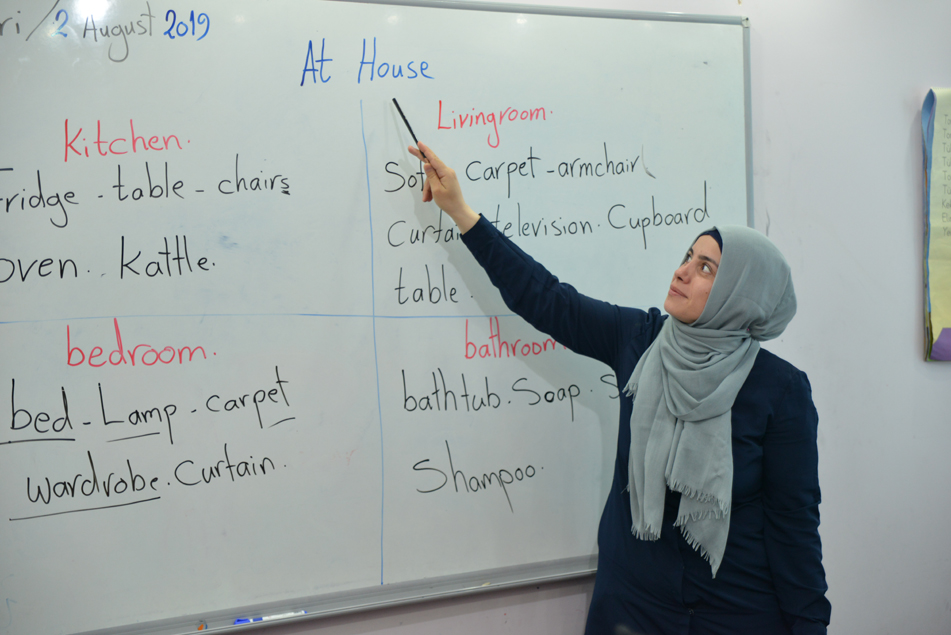 ri/2 August 2019
At House
Kitchen.
Fridge - table - chairs
oven.. kattle.
Livingroom.
Sof carpet - armchair
Curtain television. Cupboard
table.
bedroom.
bed - Lamp - carpet
wardrobe. Curtain.
bathroom
bathtub. Soap. S
Shampoo.